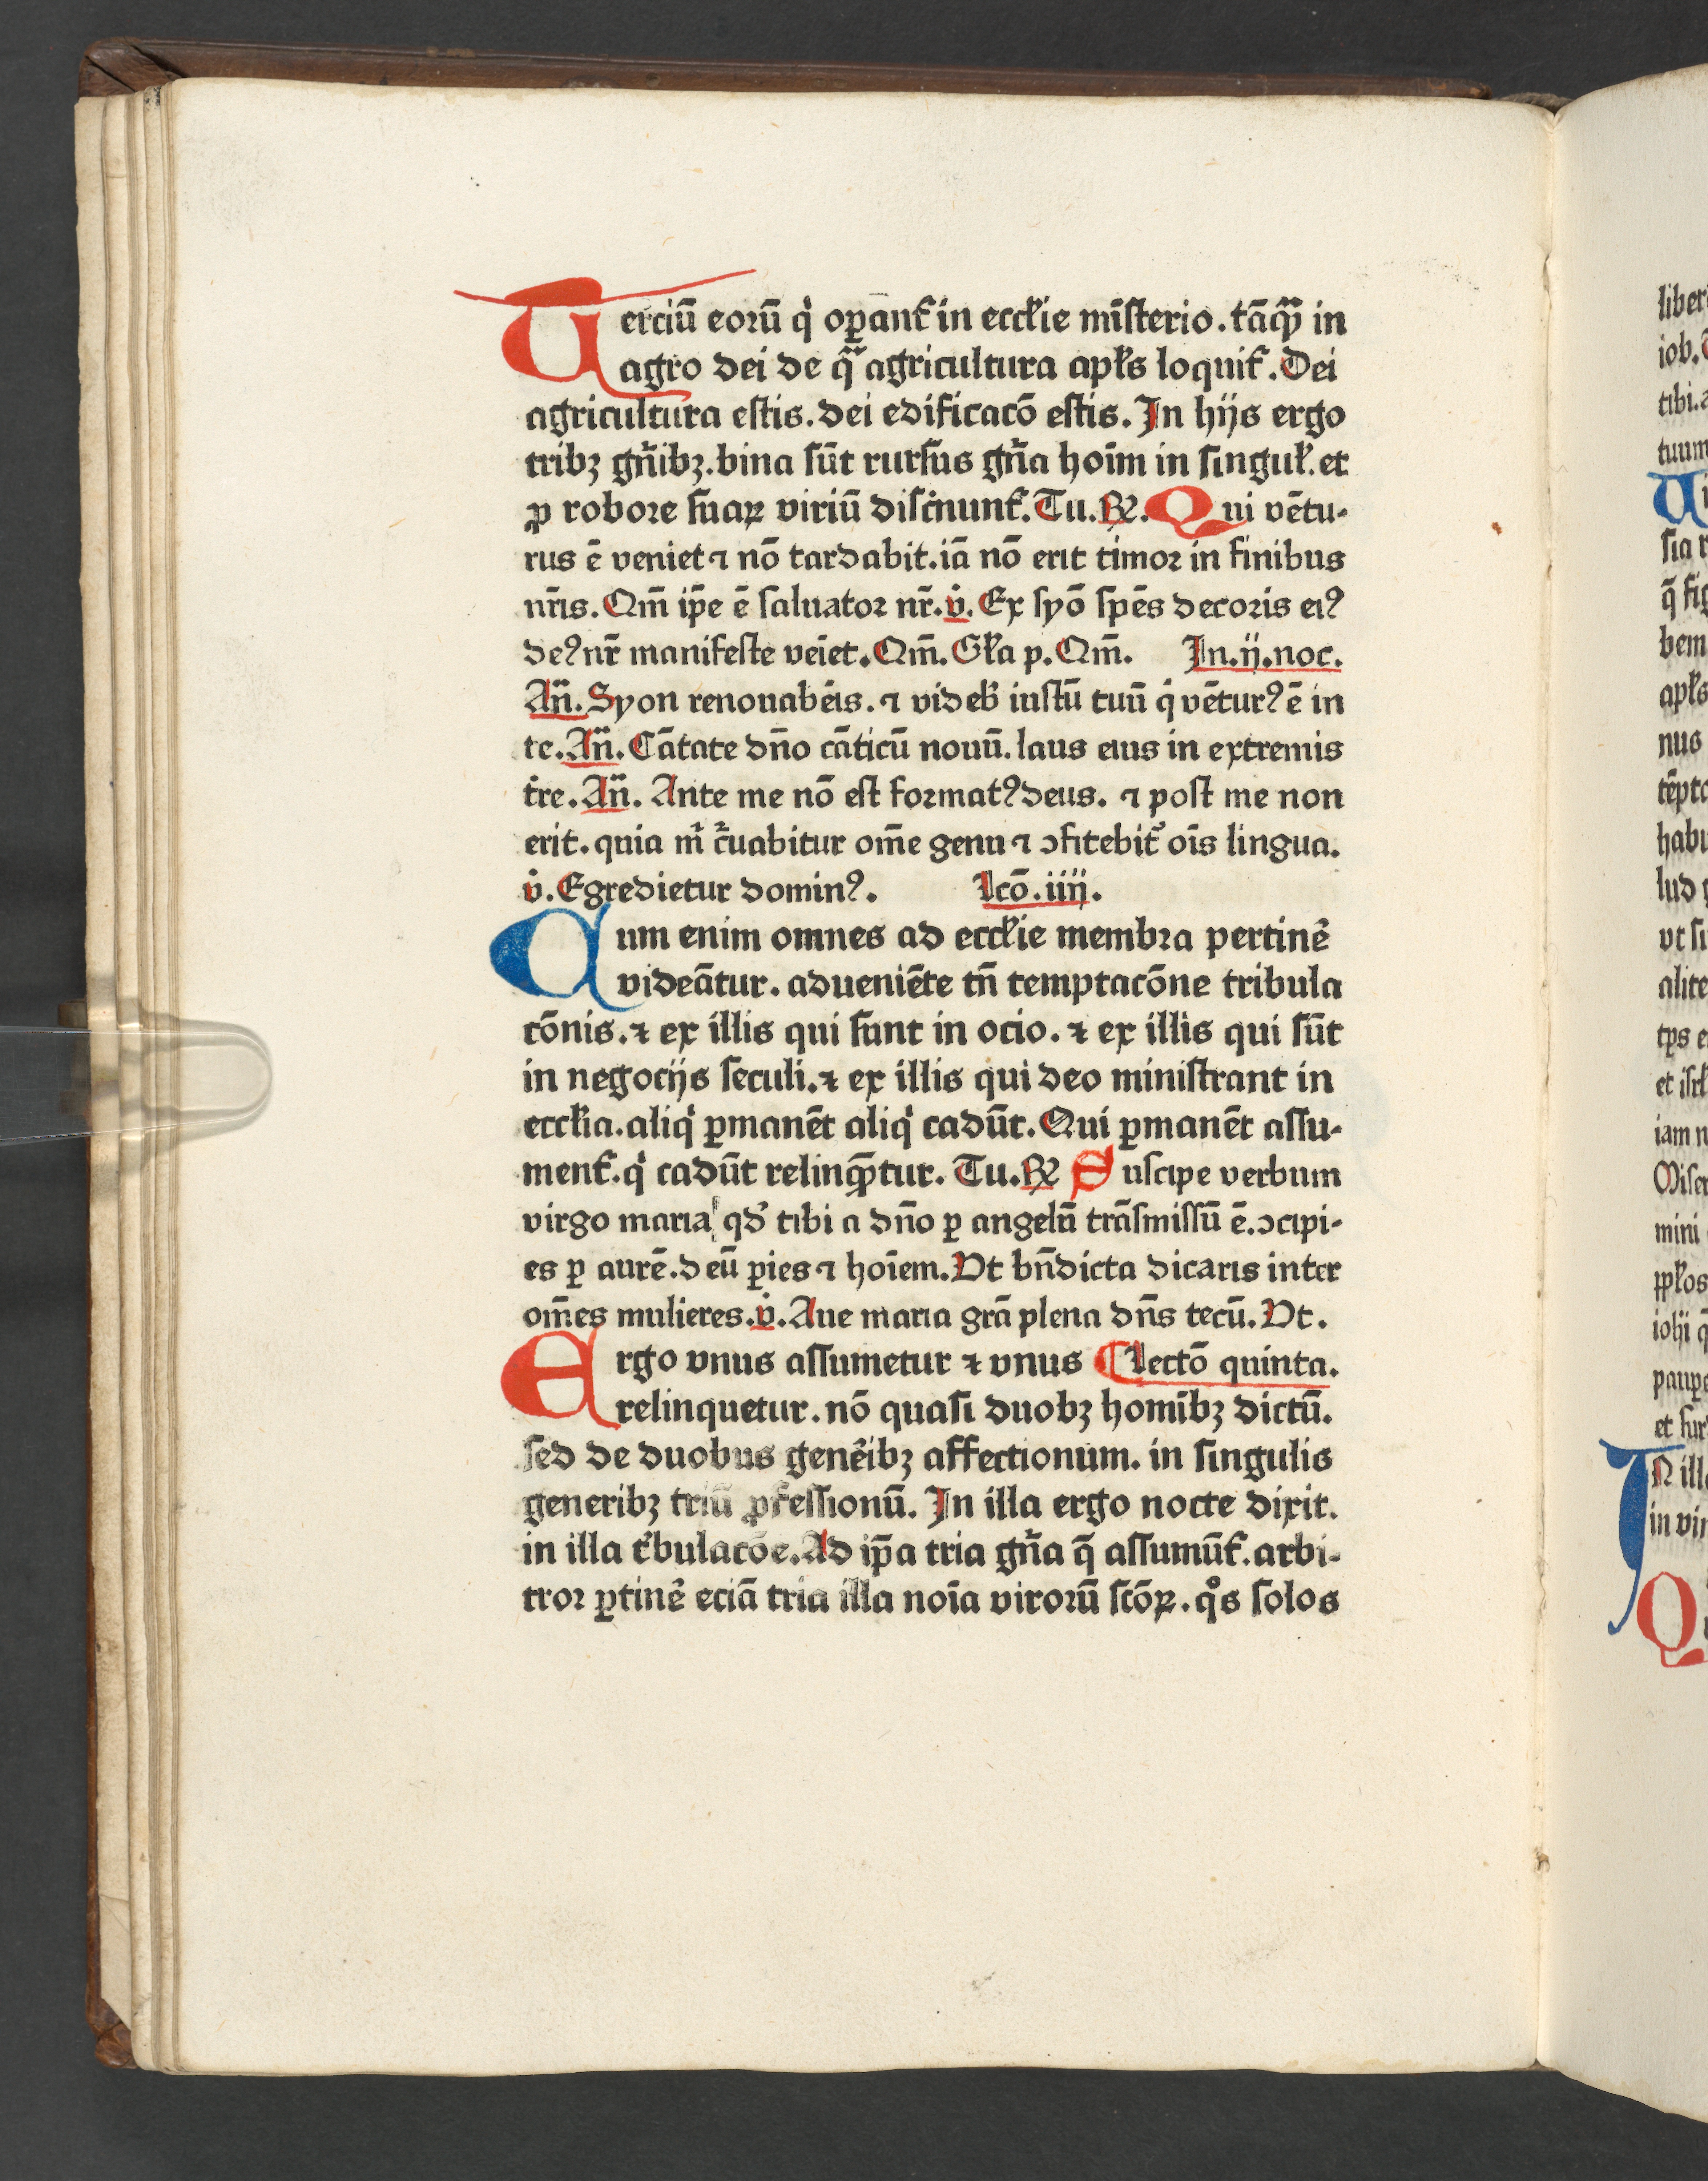 Terciū eoꝛū qͥ oꝑanť in eccľie mīſterio. tāꝙᷓ in
agro dei de qᷓ agricultura apľs loquiť. Dei
agricultura eſtis. dei edificacō eſtis. In hijs ergo
tribꝫ gn̄ibꝫ. bina ſūt rurſus gn̄a hoīm in ſinguľ. et
ꝓ roboꝛe ſuaꝝ viriū diſcͥnunť. Tu. ℞. Qui vētu⸗
rus ē veniet ⁊ nō tardabit. iā nō erit timoꝛ in finibus
nr̄is. Qm̄ ip̄e ē ſaluatoꝛ nr̄. v̇. Ex ſyō ſpēs decoꝛis eiꝰ
deꝰ nr̄ manifeſte veīet. Qm̄. Gľa p. Qm̄. In. ij. noc.
An̄. Syon renouabēis. ⁊ videƀ iuſtū tuū qͥ vēturꝰ ē in
te. An̄. Cātate dn̄o cāticū nouū. laus eius in extremis
tͥre. An̄. Ante me nō eſt foꝛmatꝰ deus. ⁊ poſt me non
erit. quia mͥ c̄uabitur om̄e genu ⁊ ↄfitebiť oīs lingua.
v̇. Egredietur dominꝰ. Lcō. iiij.
Cum enim omnes ad eccľie membꝛa pertinē
videātur. adueniēte tn̄ temptacōne tribula
cōnis. ⁊ ex illis qui ſunt in ocio. ⁊ ex illis qui ſūt
in negocijs ſeculi. ⁊ ex illis qui deo miniſtrant in
eccľia. aliqͥ ꝑmanēt aliqͥ cadūt. Qui ꝑmanēt aſſu⸗
menť. qͥ cadūt relinꝙ̄tur. Tu. ℞ Suſcipe verbum
virgo maria qď tibi a dn̄o ꝑ angelū trāſmiſſū ē. ↄcipi⸗
es ꝑ aurē. deū ꝑies ⁊ hoīem. Vt bn̄dicta dicaris inter
om̄es mulieres. v̇. Aue maria grā plena dn̄s tecū. Vt.
Ergo vnus aſſumetur ⁊ vnus ¶ Lectō quinta.
relinquetur. nō quaſi duobꝫ homībꝫ dictū.
ſed de duobus genēibꝫ affectionum. in ſingulis
generibꝫ triū ꝓfeſſionū. In illa ergo nocte dixit.
in illa tͥbulacōe. Ad ip̄a tria gn̄a q̄ aſſumūť. arbi⸗
troꝛ ꝑtinē eciā tria illa noīa viroꝛū ſcōꝝ. qͦs ſolos